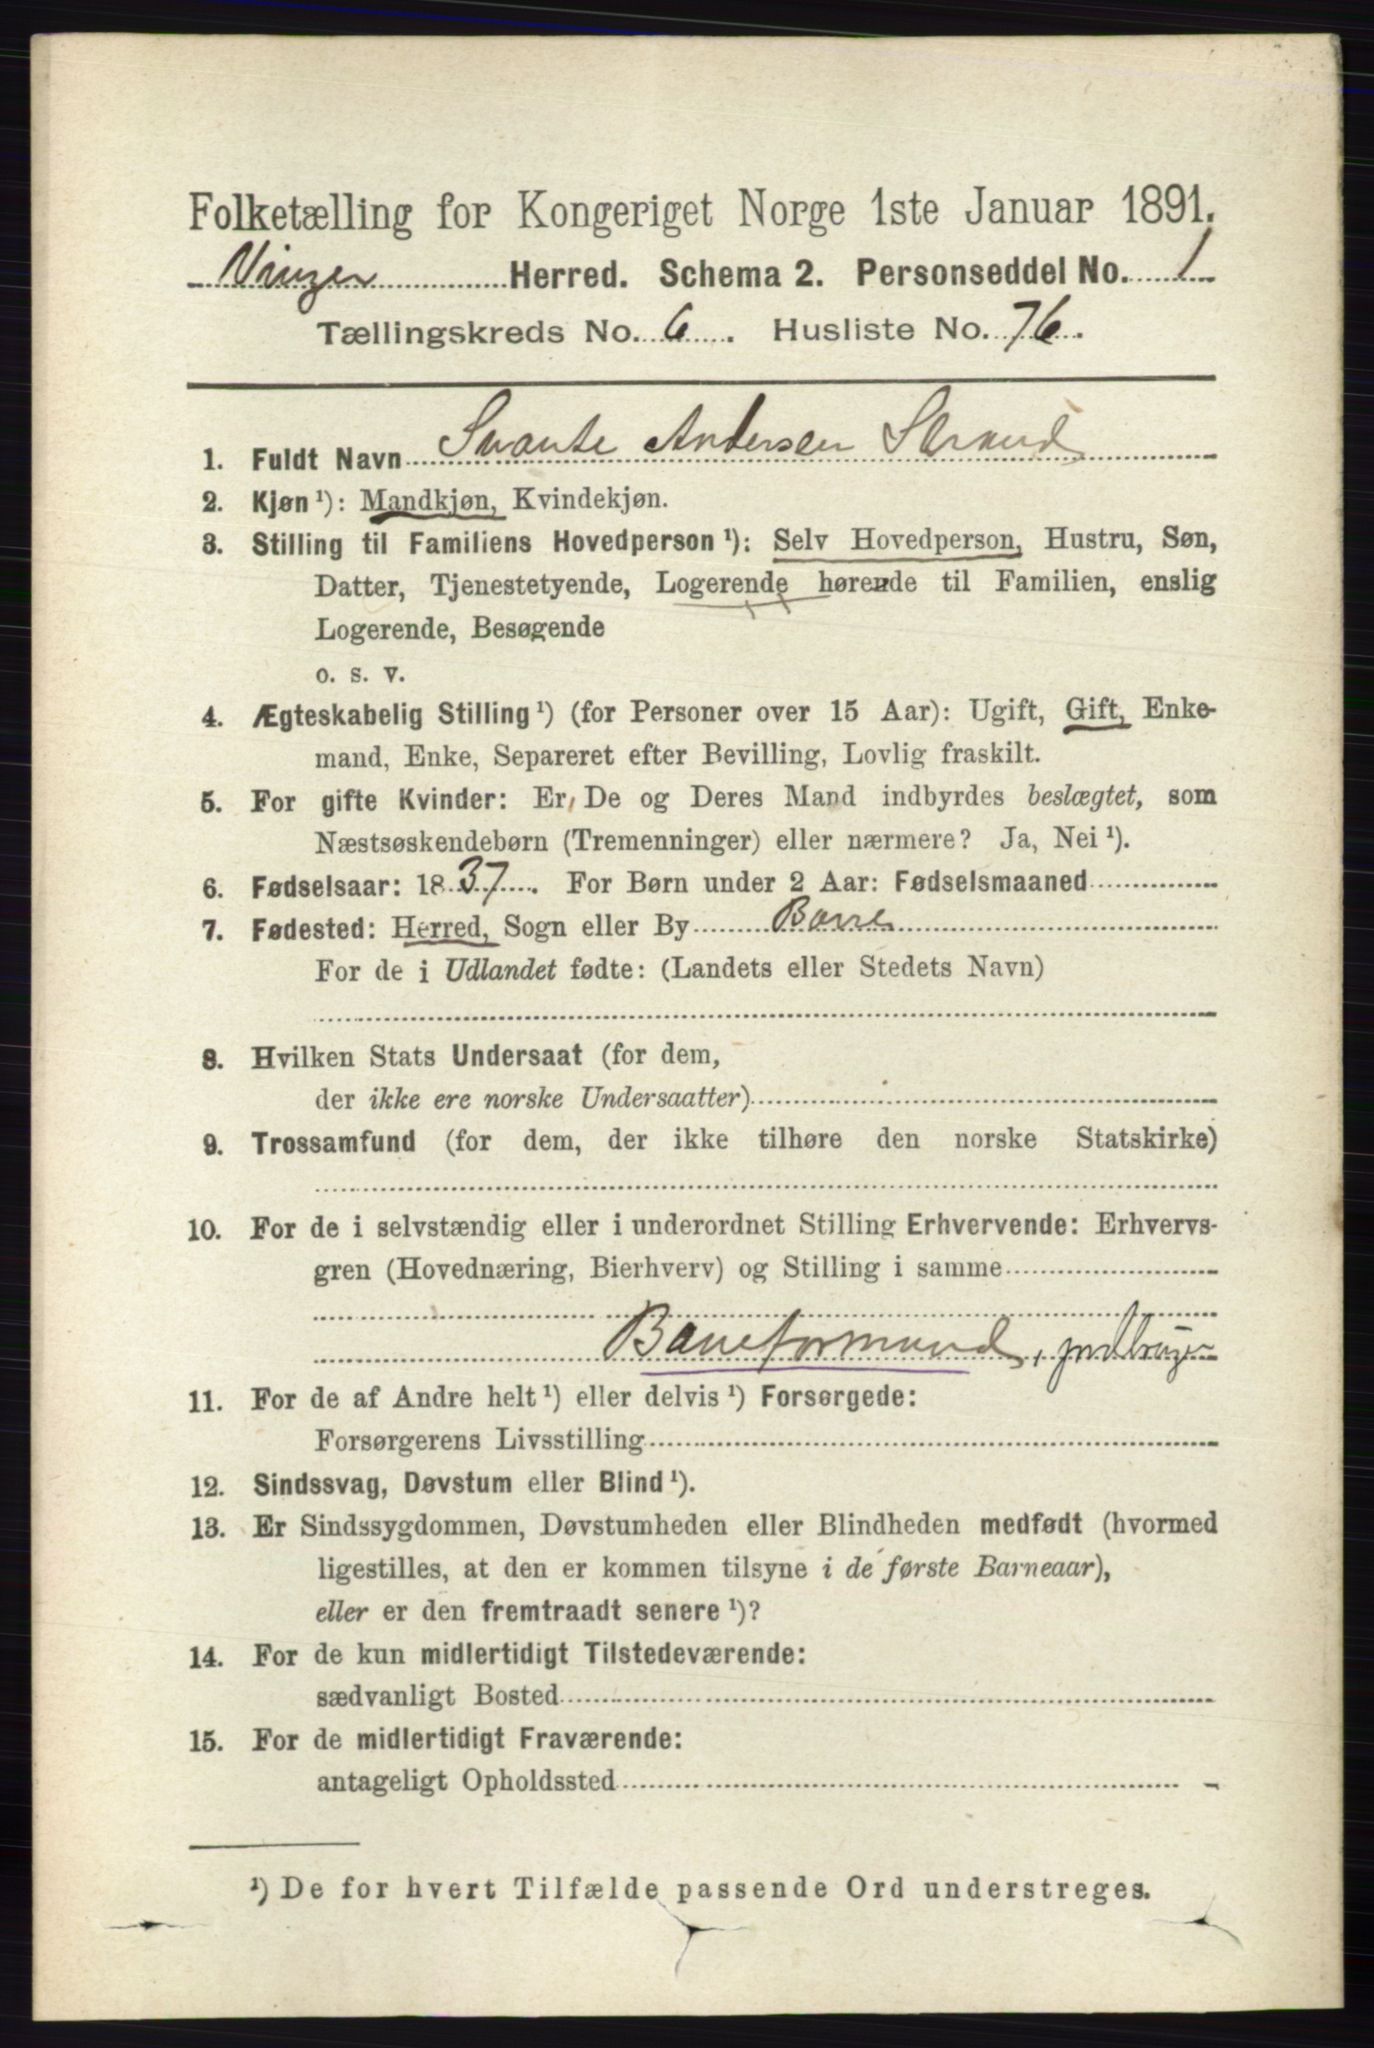 Folketælling for Kongeriget Norge 1ste Januar 1891.
Vinger Herred. Schema 2. Personseddel No. 1
Tællingskreds No. 6. Husliste No. 76.
1. Fuldt Navn Svante Andersen Strand
2. Kjøn ¹): Mandkjøn, Kvindekjøn.
3. Stilling til Familiens Hovedperson ¹): Selv Hovedperson, Hustru, Søn,
Datter, Tjenestetyende, Logerende hørende til Familien, enslig
Logerende, Besøgende
o. s. v.
4. Ægteskabelig Stilling ¹) (for Personer over 15 Aar): Ugift, Gift, Enke-
mand, Enke, Separeret efter Bevilling, Lovlig fraskilt.
5. For gifte Kvinder: Er De og Deres Mand indbyrdes beslægtet, som
Næstsøskendebørn (Tremenninger) eller nærmere? Ja, Nei ¹).
6. Fødselsaar: 1837. For Børn under 2 Aar: Fødselsmaaned
7. Fødested: Herred, Sogn eller By Borre
For de i Udlandet fødte: (Landets eller Stedets Navn)
8. Hvilken Stats Undersaat (for dem,
der ikke ere norske Undersaatter)
9. Trossamfund (for dem, der ikke tilhøre den norske Statskirke)
10. For de i selvstændig eller i underordnet Stilling Erhvervende: Erhvervs-
gren (Hovednæring, Bierhverv) og Stilling i samme
Baneformand, jordbruger
11. For de af Andre helt ¹) eller delvis ¹) Forsørgede:
Forsørgerens Livsstilling
12. Sindssvag, Døvstum eller Blind ¹).
13. Er Sindssygdommen, Døvstumheden eller Blindheden medfødt (hvormed
ligestilles, at den er kommen tilsyne i de første Barneaar),
eller er den fremtraadt senere ¹)?
14. For de kun midlertidigt Tilstedeværende:
sædvanligt Bosted
15. For de midlertidigt Fraværende:
antageligt Opholdssted
¹) De for hvert Tilfælde passende Ord understreges.